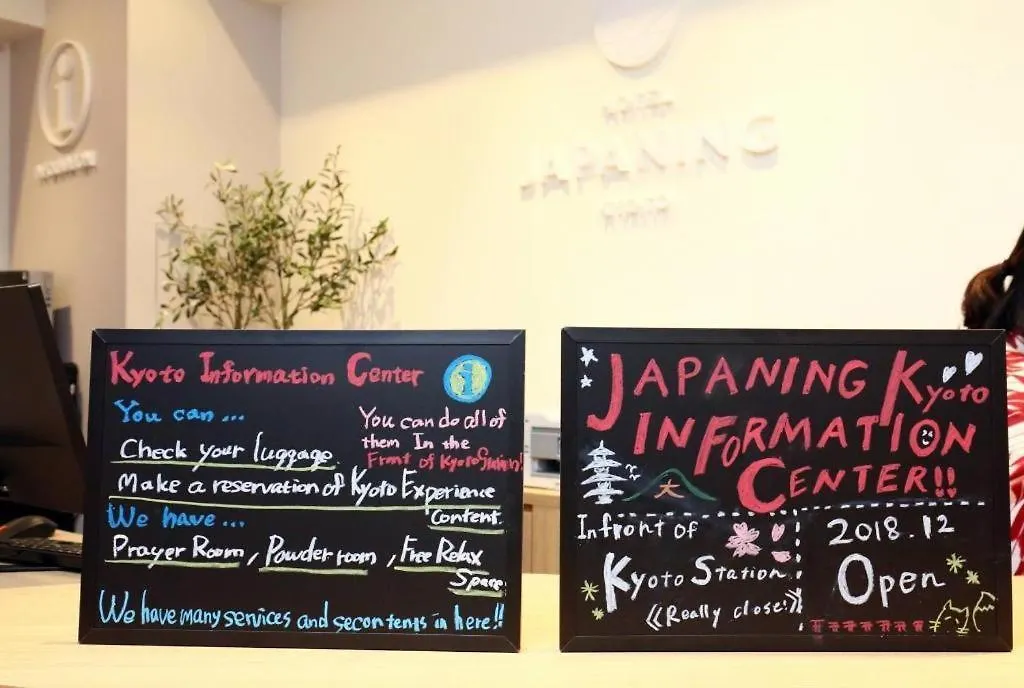 i
JAPANING
Kyoto Information Center
i
You can ...
Check your luggage.
Make a reservation of Kyoto Experience
Content.
You can do all of
them In the
Front of Kyoto Station!
We have ...
Prayer Room, Powder room, Free Relax
Space.
We have many services and secontents in here!!
JAPANING Kyoto
INFORMATION
CENTER!!
大
Infront of
Kyoto Station
《Really close!》
2018.12
Open